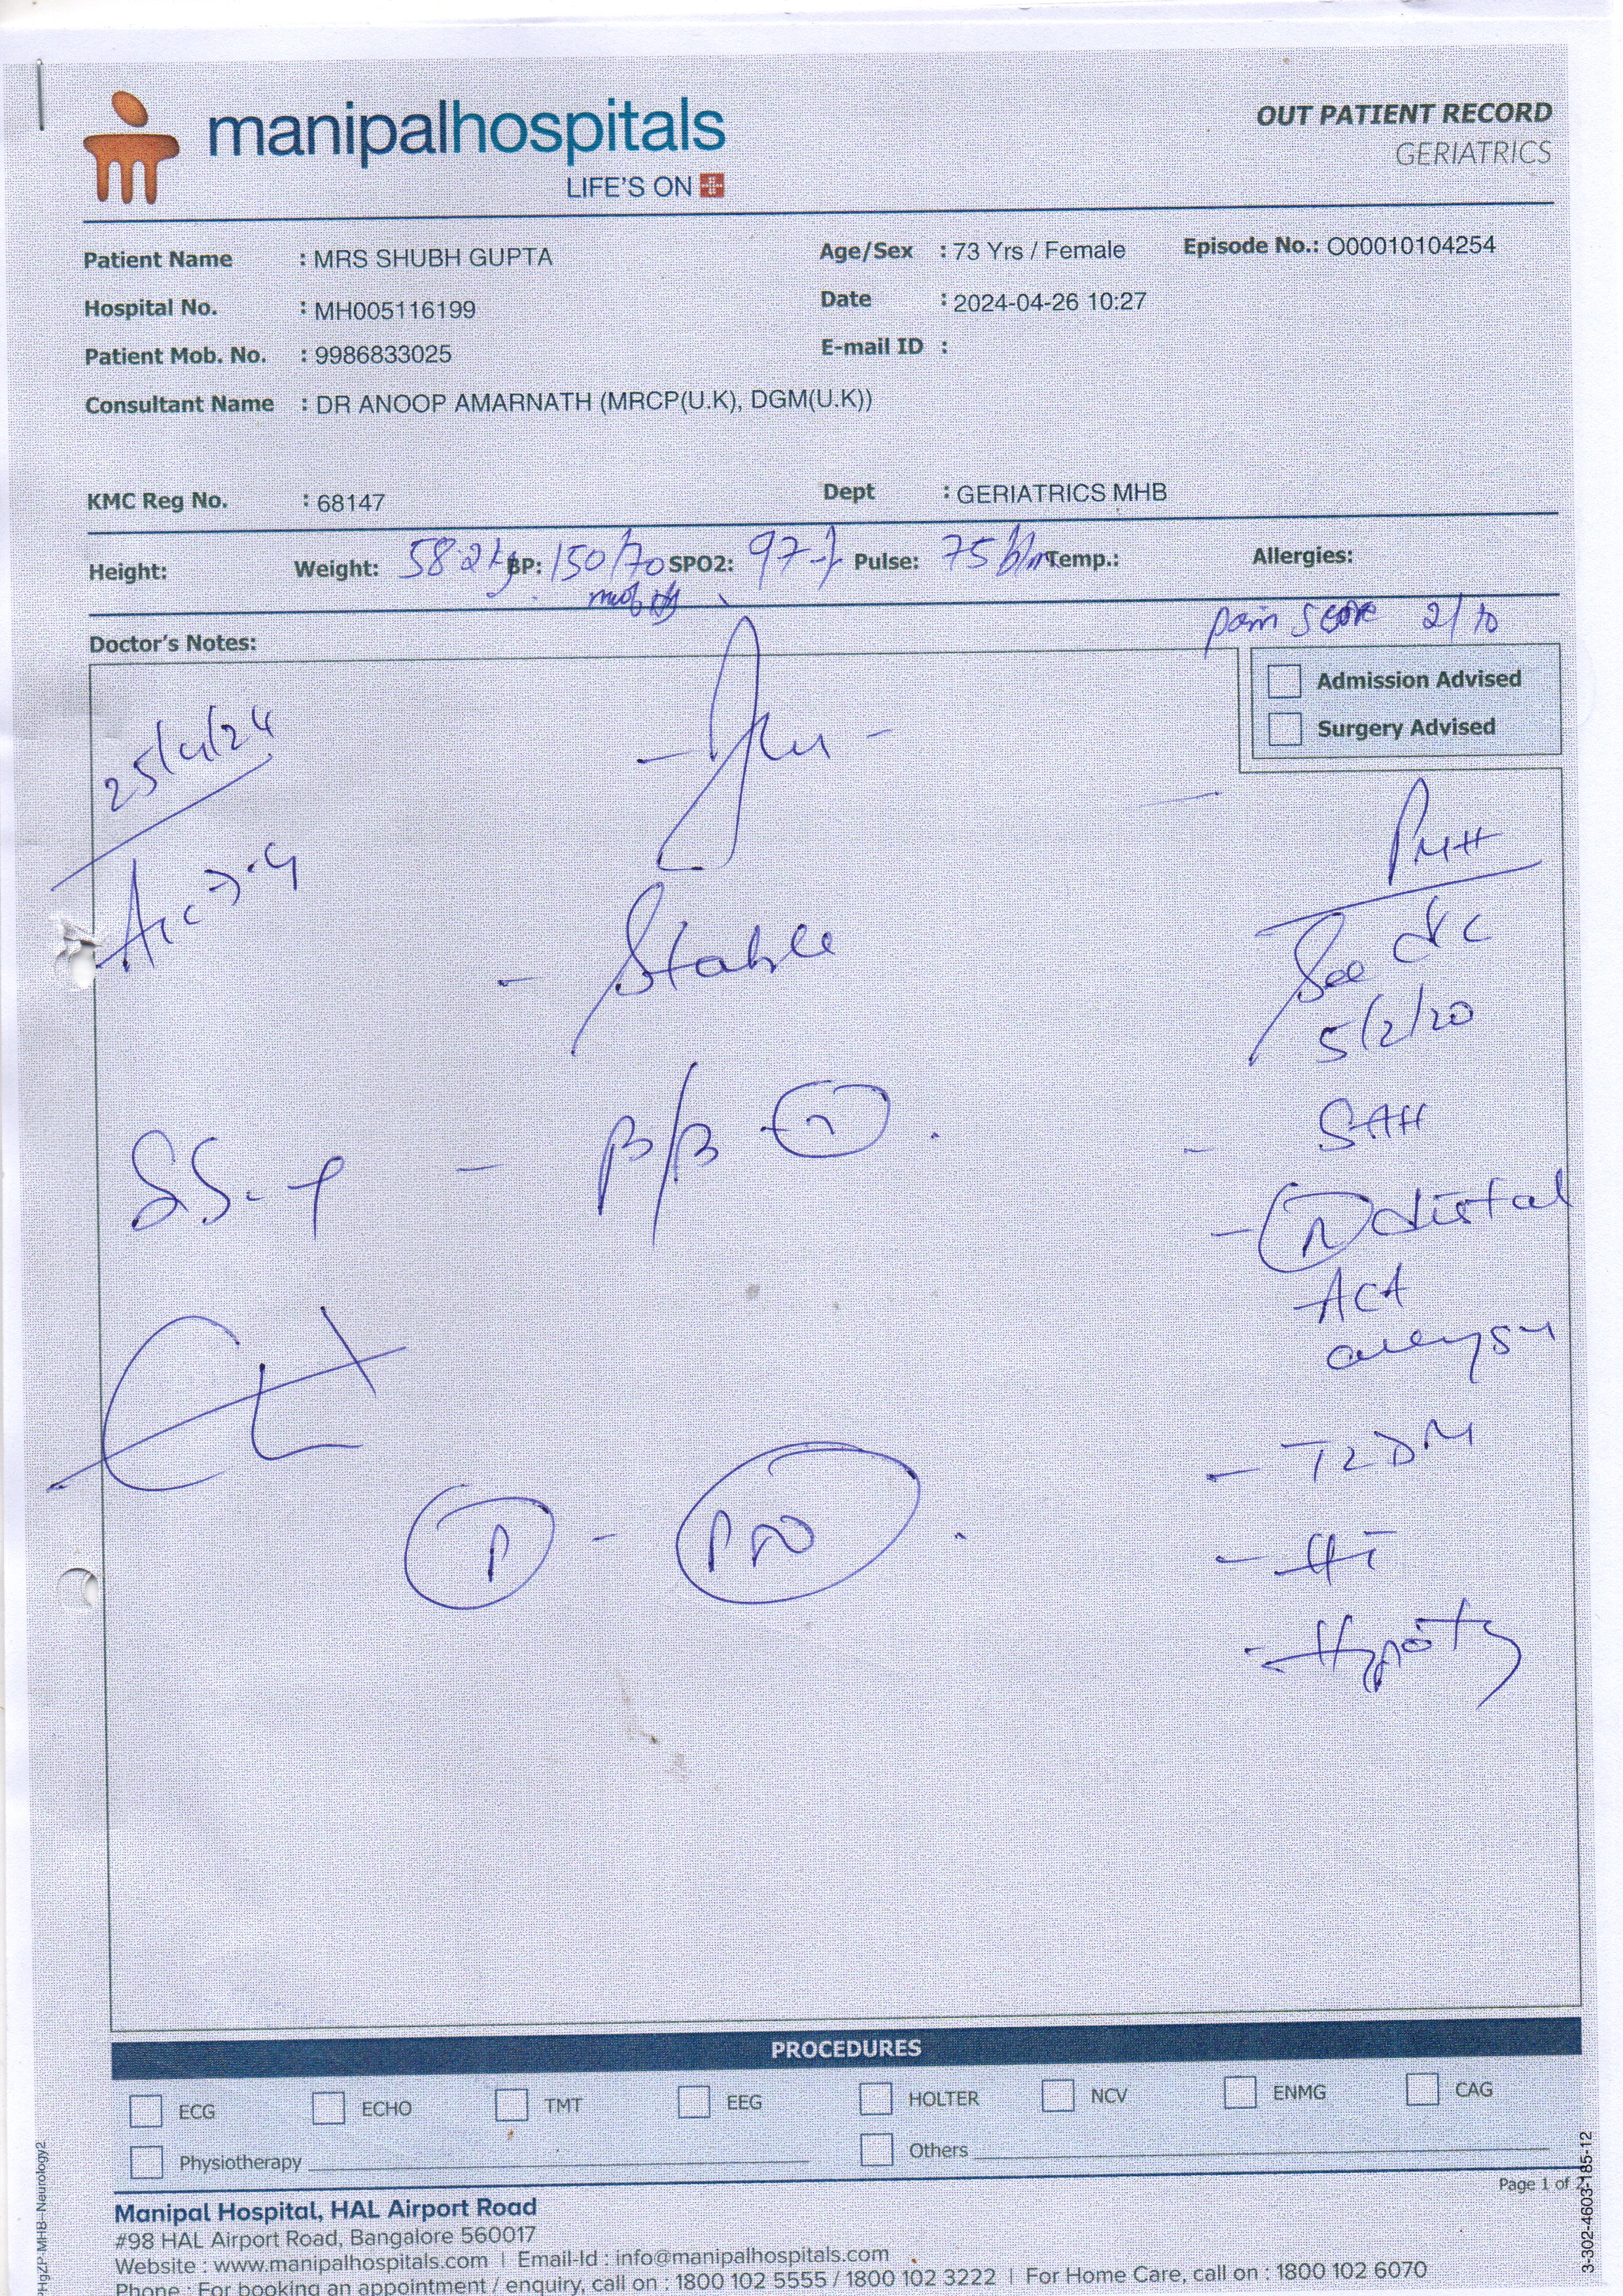 manipalhospitals
LIFE'S ON
OUT PATIENT RECORD
GERIATRICS
Patient Name : MRS SHUBH GUPTA
Age/Sex : 73 Yrs / Female
Episode No.: O00010104254
Hospital No. : MH005116199
Date : 2024-04-26 10:27
Patient Mob. No. : 9986833025
E-mail ID :
Consultant Name : DR ANOOP AMARNATH (MRCP(U.K), DGM(U.K))
KMC Reg No. : 68147
Dept : GERIATRICS MHB
Height: Weight: 58.2kg BP: 150/70 SPO2: 97% Pulse: 75 b/m Temp.: Allergies:
pain score 2/10
Doctor's Notes:
Admission Advised
Surgery Advised
25/4/24
PMH
- Stable
See
5/2/20
- SAH
distal
ACA
- T2DM
- HT
Page 1 of 2
PROCEDURES
ECG ECHO TMT EEG HOLTER NCV ENMG CAG
Physiotherapy
Others
Manipal Hospital, HAL Airport Road
#98 HAL Airport Road, Bangalore 560017
Website : www.manipalhospitals.com | Email-Id : info@manipalhospitals.com
Phone : For booking an appointment / enquiry, call on : 1800 102 5555 / 1800 102 3222 | For Home Care, call on : 1800 102 6070
3-302-4603-185-12